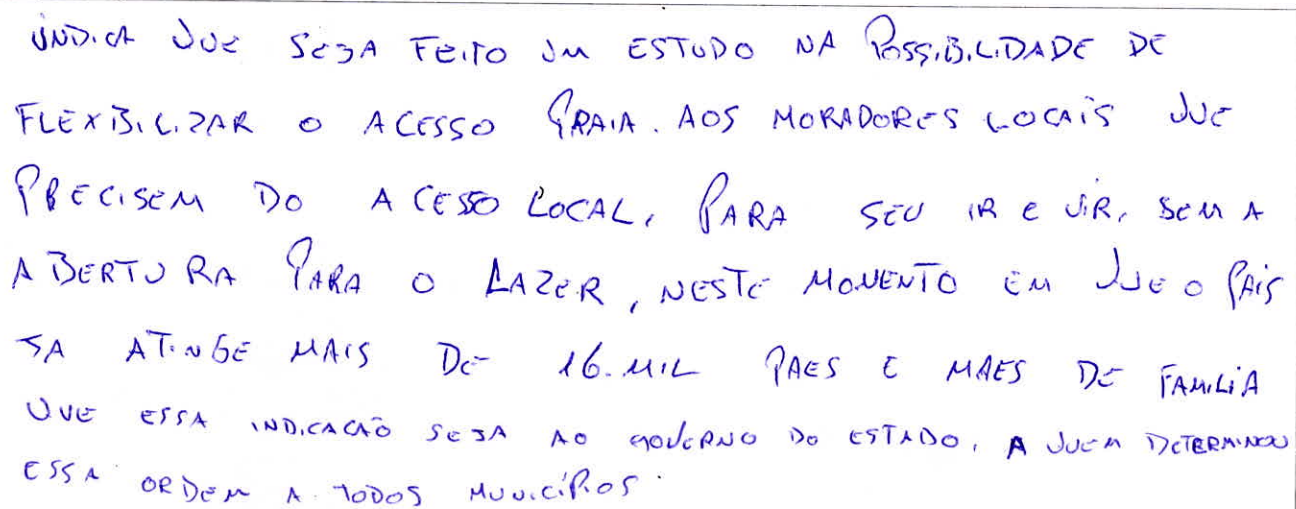 INDICA QUE SEJA FEITO UM ESTUDO NA POSSIBILIDADE DE
FLEXIBILIZAR O ACESSO PRAIA. AOS MORADORES LOCAIS QUE
PRECISEM DO ACESSO LOCAL, PARA SEU IR E VIR, SEM A
ABERTURA PARA O LAZER, NESTE MOMENTO EM QUE O PAIS
JA ATINGE MAIS DE 16.MIL PAES E MAES DE FAMILIA
QUE ESSA INDICACAÕ SEJA AO GOVERNO DO ESTADO, A QUEM DETERMINOU
ESSA ORDEM A TODOS MUNICÍPIOS.